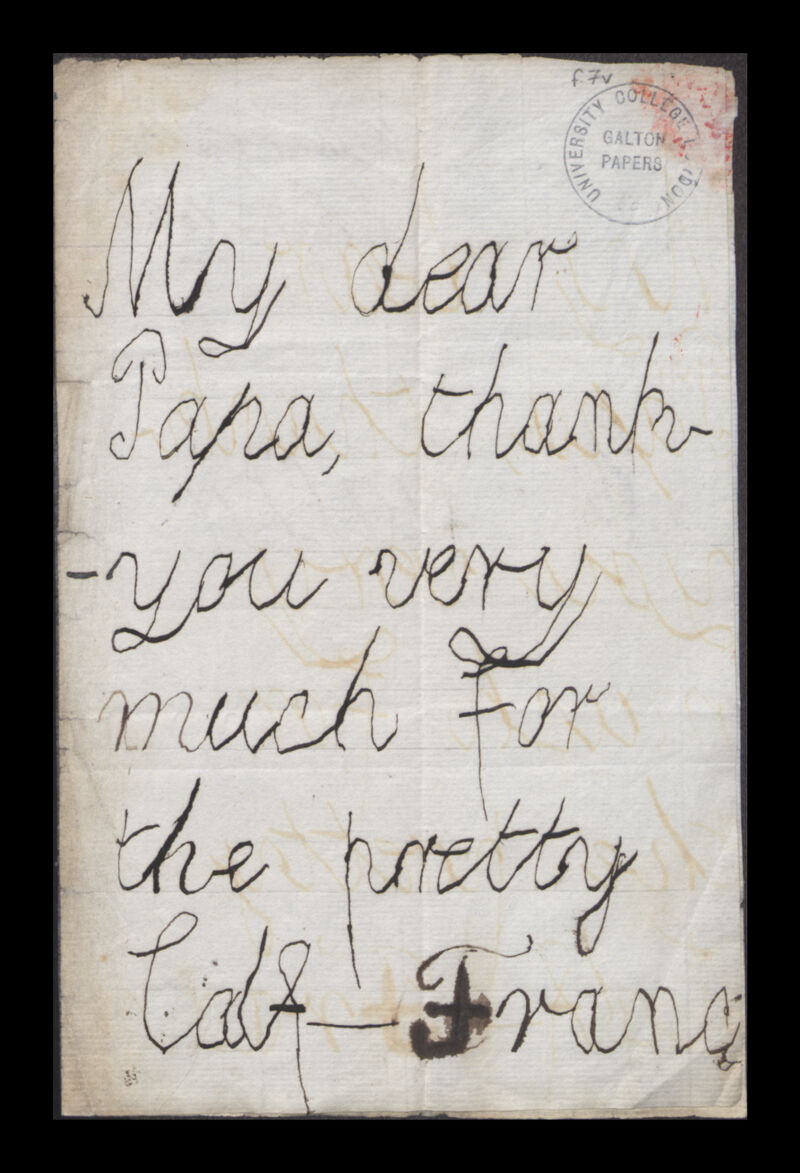 f.7v
UNIVERSITY COLLEGE LONDON
GALTON
PAPERS
My dear
Papa, thank
-you very
much for
the pretty
Calf — Franc